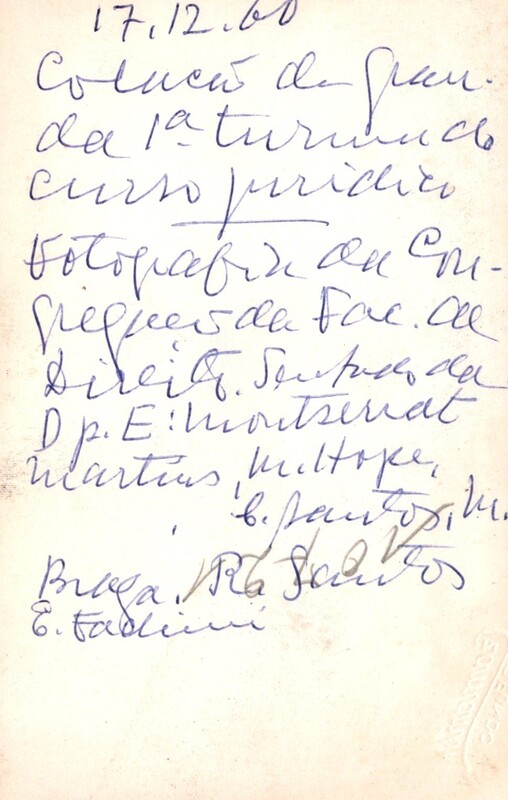 17.12.60
Colação de grau
da 1ª turma do
curso jurídico
Fotografia da Con-
gregação da Fac. de
Direito. Sentado da
D p. E: Montserrat
Martins, M. Hope,
C. Santos, M.
Braga, R. Santos
E. Fadini